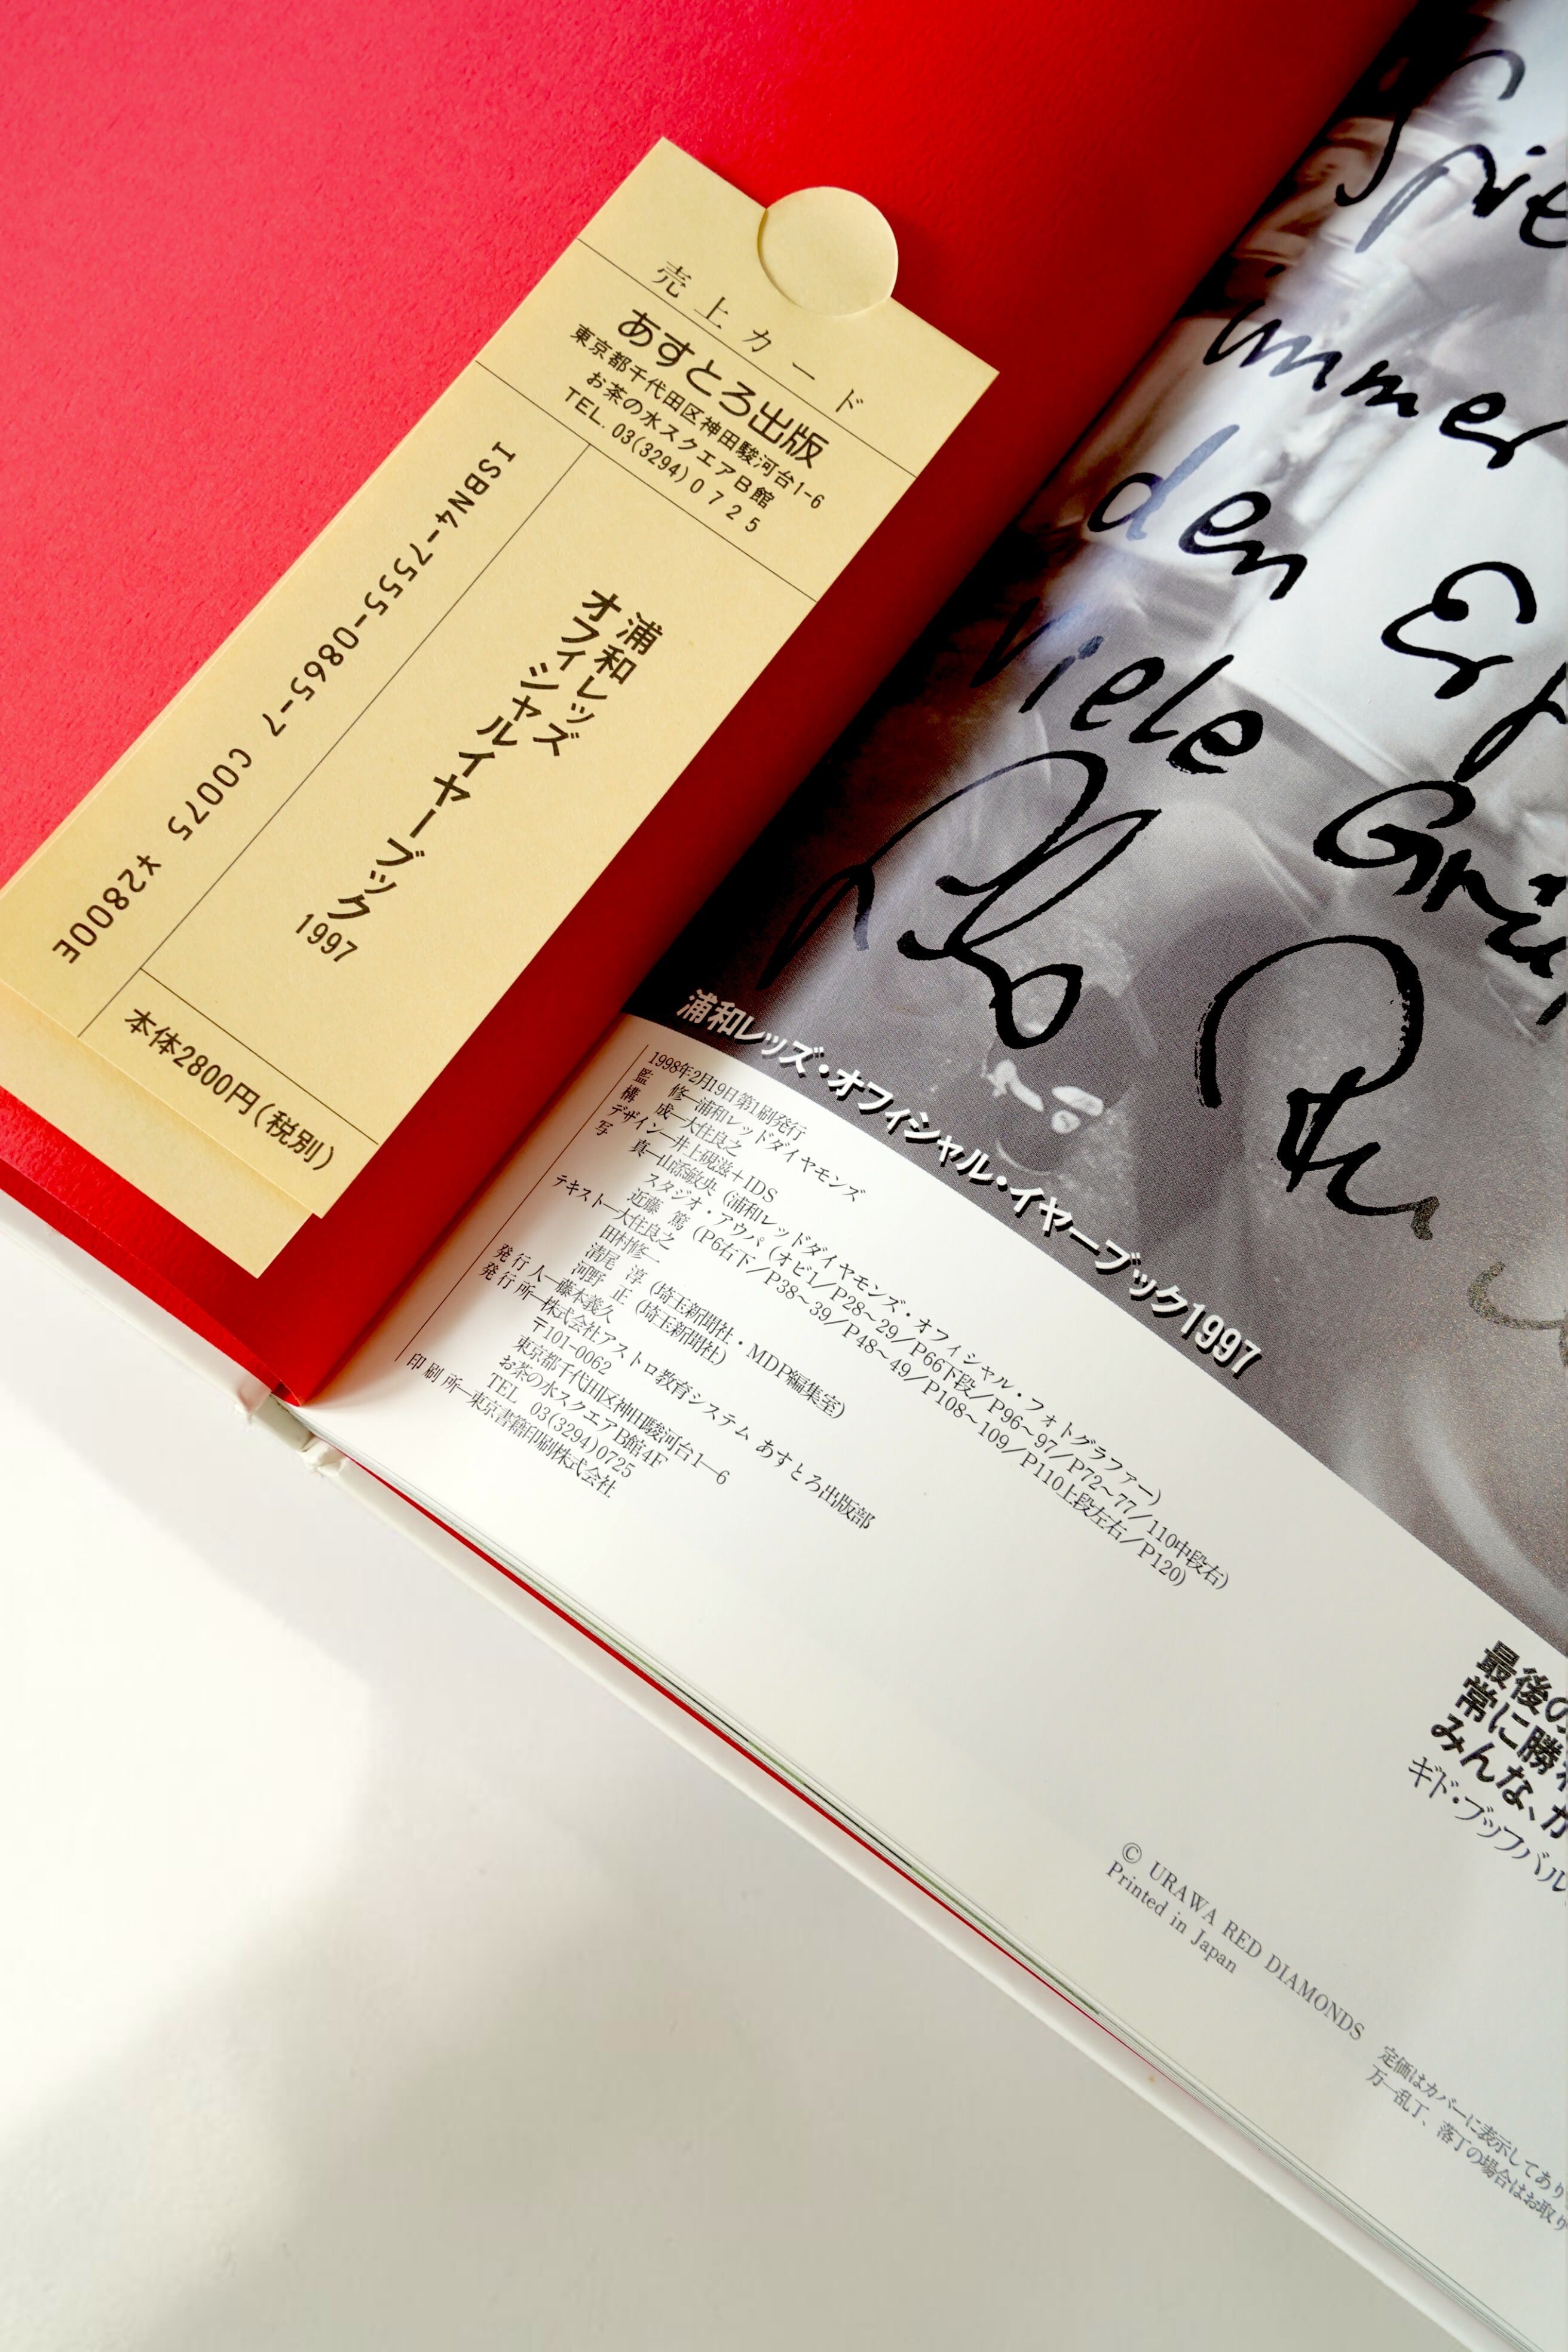 売上カード
あすとろ出版
東京都千代田区神田駿河台1-6
お茶の水スクエアB館
TEL. 03(3294)0725
浦和レッズ
オフィシャルイヤーブック
1997
ISBN4-7555-0865-7 C0075 ¥2800E
本体2800円(税別)
immer
den
viele
浦和レッズ・オフィシャル・イヤーブック1997
1998年2月19日第1刷発行
監　修―浦和レッドダイヤモンズ
構　成―大住良之
デザイン―井上硯滋＋IDS
写　真―山添敏央（浦和レッドダイヤモンズ・オフィシャル・フォトグラファー）
スタジオ・アウパ（オビ1／P28〜29／P66下段／P96〜97／P72〜77／110中段右）
近藤　篤（P6右下／P38〜39／P48〜49／P108〜109／P110上段左右／P120）
テキスト―大住良之
田村修一
清尾　淳（埼玉新聞社・MDP編集室）
河野　正（埼玉新聞社）
発行人―藤本義久
発行所―株式会社アストロ教育システム あすとろ出版部
〒101-0062
東京都千代田区神田駿河台1―6
お茶の水スクエアB館4F
TEL　03(3294)0725
印刷所―東京書籍印刷株式会社
最後の
常に勝
みんな、
ギド・ブッフバル
© URAWA RED DIAMONDS
Printed in Japan
定価はカバーに表示してあり
万一乱丁、落丁の場合はお取り